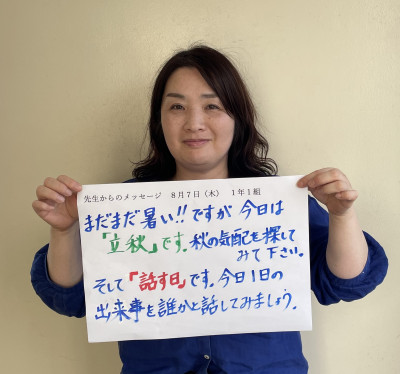 先生からのメッセージ 8月7日（木） 1年1組
まだまだ暑い!!ですが 今日は
「立秋」です。秋の気配を探して
みて下さい。
そして「話す日」です。今日1日の
出来事を誰かと話してみましょう。